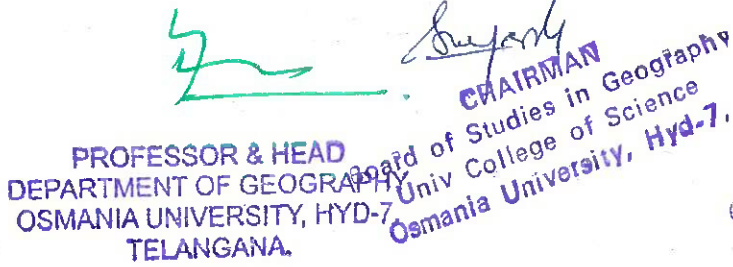 PROFESSOR & HEAD
DEPARTMENT OF GEOGRAPHY
OSMANIA UNIVERSITY, HYD-7
TELANGANA.
CHAIRMAN
Board of Studies in Geography
Univ College of Science
Osmania University, Hyd-7,